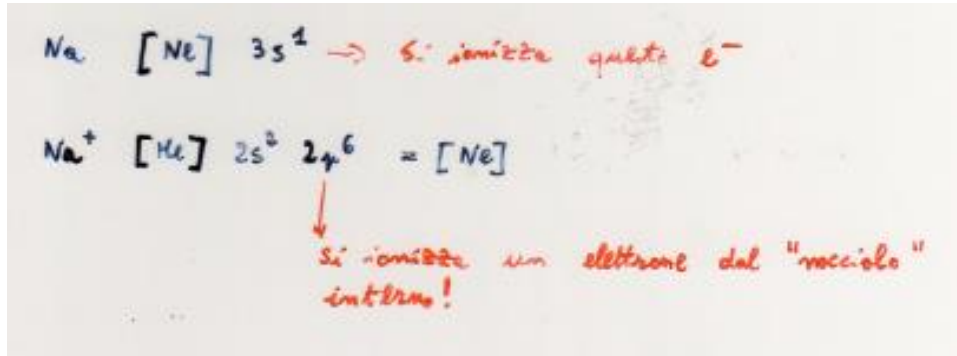 Na [Ne] 3s¹ → Si ionizza questo e⁻
Na⁺ [He] 2s² 2p⁶ = [Ne]
si ionizza un elettrone dal "nocciolo"
interno!